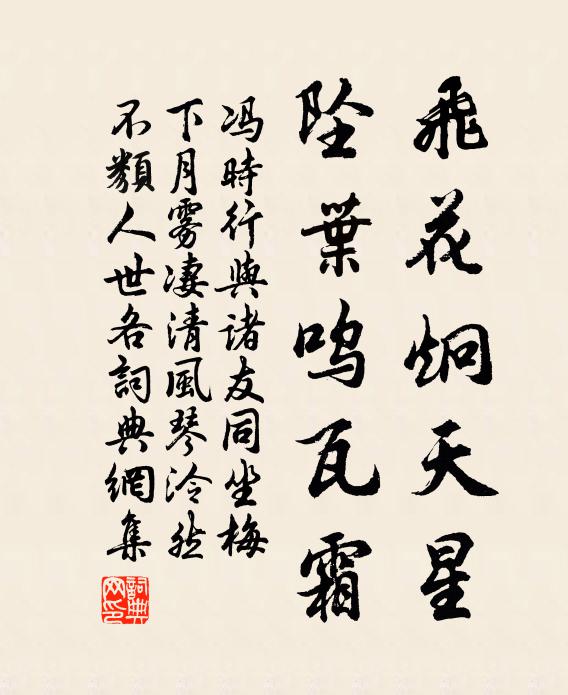 飛花炯天星
墜葉鳴瓦霜
馮時行與諸友同坐梅
下月霧凄清風琴泠然
不類人世各詞典網集
詞典網印